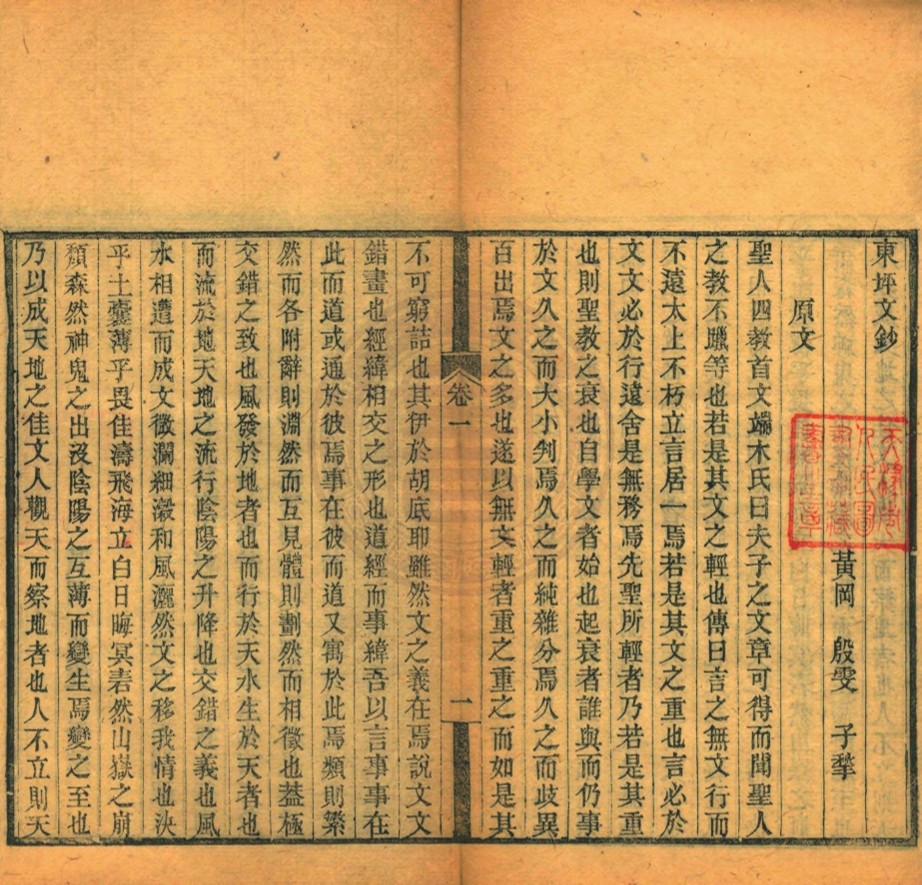 東坪文鈔
黃岡 殷雯 子犂
原文
聖人四教首文端木氏曰夫子之文章可得而聞聖人
之教不躐等也若是其文之輕也傳曰言之無文行而
不遠太上不朽立言居一焉若是其文之重也言必於
文文必於行遠舍是無務焉先聖所輕者乃若是其重
也則聖教之衰也自學文者始也起衰者誰與而仍事
於文久之而大小判焉久之而純雜分焉久之而歧異
百出焉文之多也遂以無文輕者重之重之而如是其
卷一
一
不可窮詰也其伊於胡底耶雖然文之義在焉說文文
錯畫也經緯相交之形也道經而事緯吾以言事事在
此而道或通於彼焉事在彼而道又寓於此焉類則縈
然而各附辭則淵然而互見體則劃然而相徵也葢極
交錯之致也風發於地者也而行於天水生於天者也
而流於地天地之流行陰陽之升降也交錯之義也風
水相遭而成文微瀾細瀫和風灑然文之移我情也決
乎土囊薄乎畏佳濤飛海立白日晦冥砉然山嶽之崩
頹森然神鬼之出沒陰陽之互薄而變生焉變之至也
乃以成天地之佳文人觀天而察地者也人不立則天